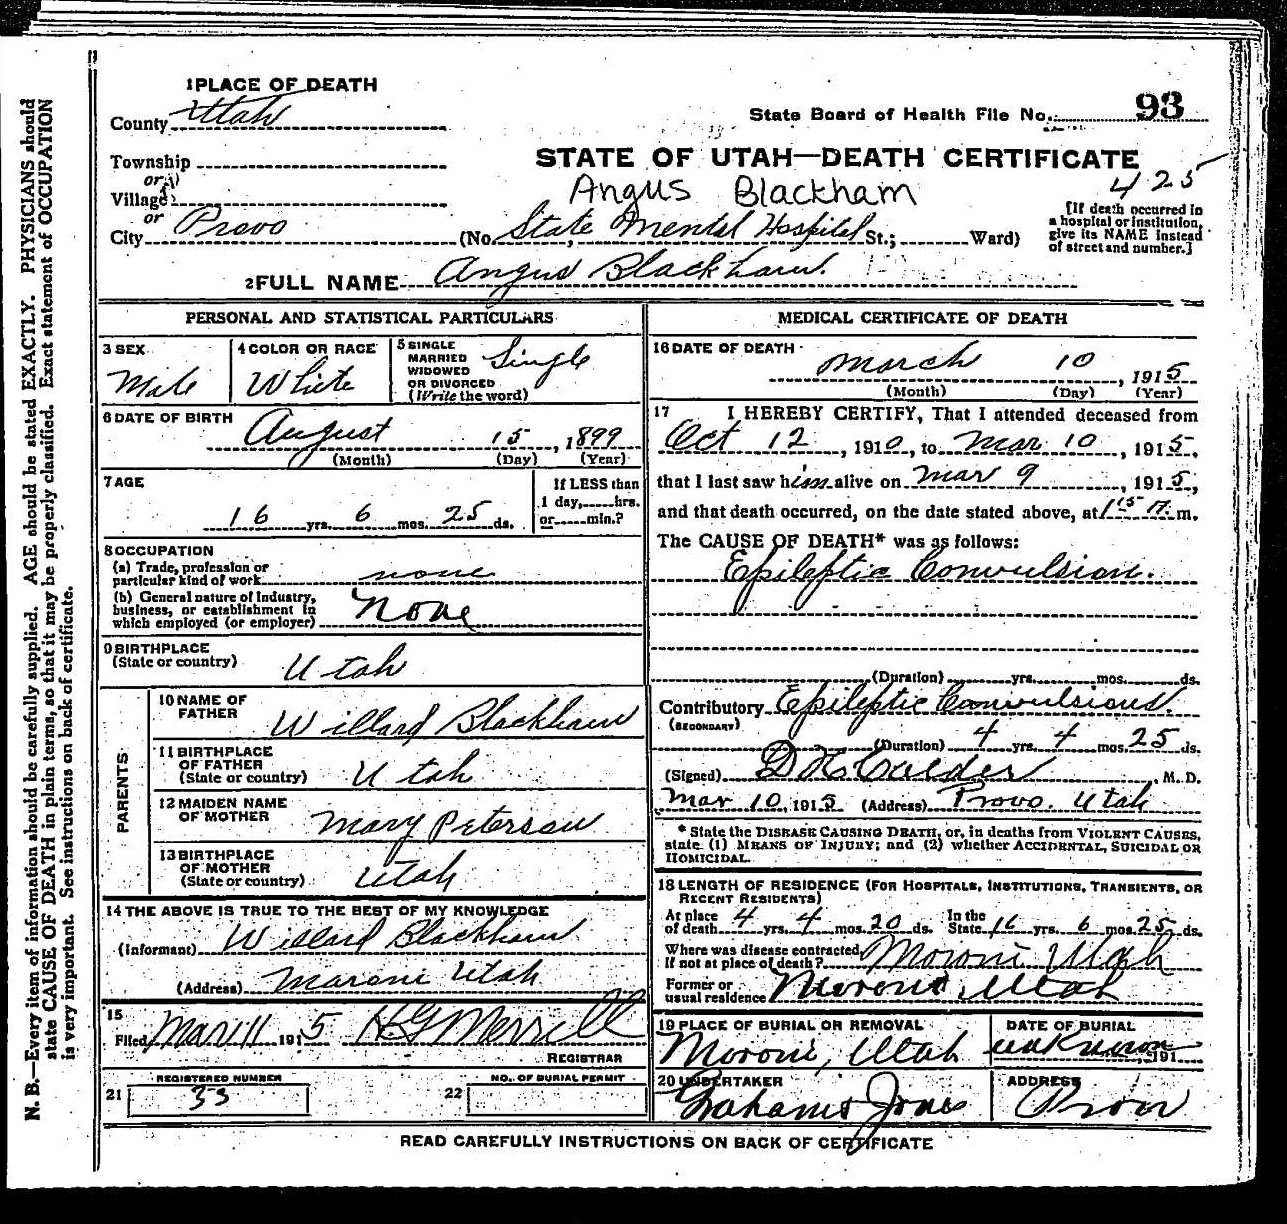 1 PLACE OF DEATH
County Utah
State Board of Health File No. 93
Township
or
Village
or
City Provo
STATE OF UTAH—DEATH CERTIFICATE
425
Angus Blackham
(No. State Mental Hospital St.; Ward)
[If death occurred in
a hospital or institution,
give its NAME instead
of street and number.]
2 FULL NAME Angus Blackham.
PERSONAL AND STATISTICAL PARTICULARS
3 SEX
Male
4 COLOR OR RACE
White
5 SINGLE
MARRIED
WIDOWED
OR DIVORCED
(Write the word)
Single
6 DATE OF BIRTH
August 15, 1899
(Month) (Day) (Year)
7 AGE
16 yrs. 6 mos. 25 ds.
If LESS than
1 day, hrs.
or min.?
8 OCCUPATION
(a) Trade, profession or
particular kind of work none
(b) General nature of Industry,
business, or establishment in
which employed (or employer) None
9 BIRTHPLACE
(State or country) Utah
PARENTS
10 NAME OF
FATHER Willard Blackham
11 BIRTHPLACE
OF FATHER
(State or country) Utah
12 MAIDEN NAME
OF MOTHER Mary Peterson
13 BIRTHPLACE
OF MOTHER
(State or country) Utah
14 THE ABOVE IS TRUE TO THE BEST OF MY KNOWLEDGE
(Informant) Willard Blackham
(Address) Maroni Utah
15
Filed Mar 11 1915 HG Merrill
REGISTRAR
REGISTERED NUMBER
21 33
NO. OF BURIAL PERMIT
22
MEDICAL CERTIFICATE OF DEATH
16 DATE OF DEATH
March 10, 1915
(Month) (Day) (Year)
17 I HEREBY CERTIFY, That I attended deceased from
Oct 12, 1910, to Mar 10, 1915,
that I last saw him alive on Mar 9, 1915,
and that death occurred, on the date stated above, at 1 15 m.
The CAUSE OF DEATH* was as follows:
Epileptic Convulsion.
(Duration) yrs. mos. ds.
Contributory Epileptic Convulsions.
(SECONDARY)
(Duration) 4 yrs. 4 mos. 25 ds.
(Signed) D H Calder, M. D.
Mar 10, 1915 (Address) Provo. Utah
* State the DISEASE CAUSING DEATH, or, in deaths from VIOLENT CAUSES,
state (1) MEANS OF INJURY; and (2) whether ACCIDENTAL, SUICIDAL OR
HOMICIDAL.
18 LENGTH OF RESIDENCE (FOR HOSPITALS, INSTITUTIONS, TRANSIENTS, OR
RECENT RESIDENTS)
At place
of death 4 yrs. 4 mos. 20 ds.
In the
State 16 yrs. 6 mos. 25 ds.
Where was disease contracted,
If not at place of death? Moroni Utah
Former or
usual residence Moroni, Utah
19 PLACE OF BURIAL OR REMOVAL
Moroni, Utah
DATE OF BURIAL
unknown, 191
20 UNDERTAKER
Grahams Jones
ADDRESS
Provo
READ CAREFULLY INSTRUCTIONS ON BACK OF CERTIFICATE
N. B.—Every item of information should be carefully supplied. AGE should be stated EXACTLY. PHYSICIANS should
state CAUSE OF DEATH in plain terms, so that it may be properly classified. Exact statement of OCCUPATION
is very important. See instructions on back of certificate.